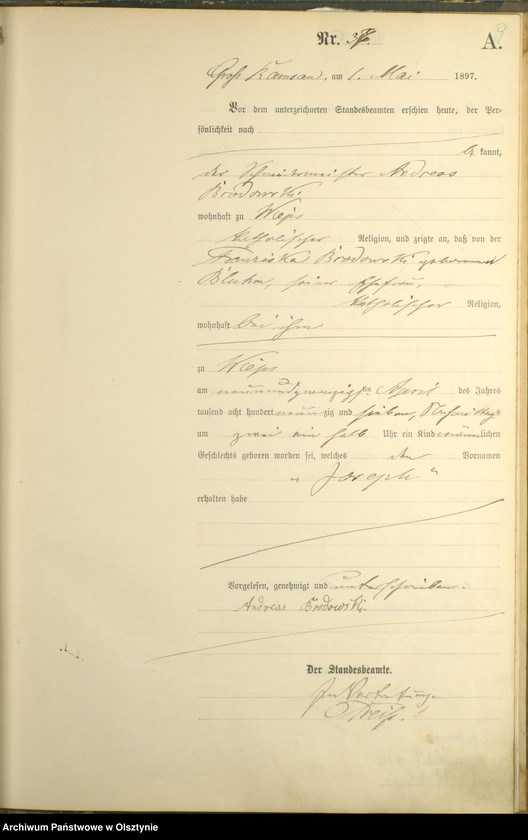 Nr. 38. A.
Groß Kamsau, am 1. Mai 1897.
Vor dem unterzeichneten Standesbeamten erschien heute, der Per-
sönlichkeit nach
be kannt,
der Schmiedemeister Andreas
Brodowski
wohnhaft zu Wieps
katholischer Religion, und zeigte an, daß von der
Franziska Brodowski geborenen
Bluhm, seiner Ehefrau,
katholischer Religion,
wohnhaft bei ihm
zu Wieps
am neunundzwanzigsten April des Jahres
tausend acht hundert neunzig und sieben, Nachmittags
um zwei ein halb Uhr ein Kind männlichen
Geschlechts geboren worden sei, welches den Vornamen
„Joseph“
erhalten habe
Vorgelesen, genehmigt und unterschrieben.
Andreas Brodowski.
Der Standesbeamte.
In Vertretung.
Archiwum Państwowe w Olsztynie